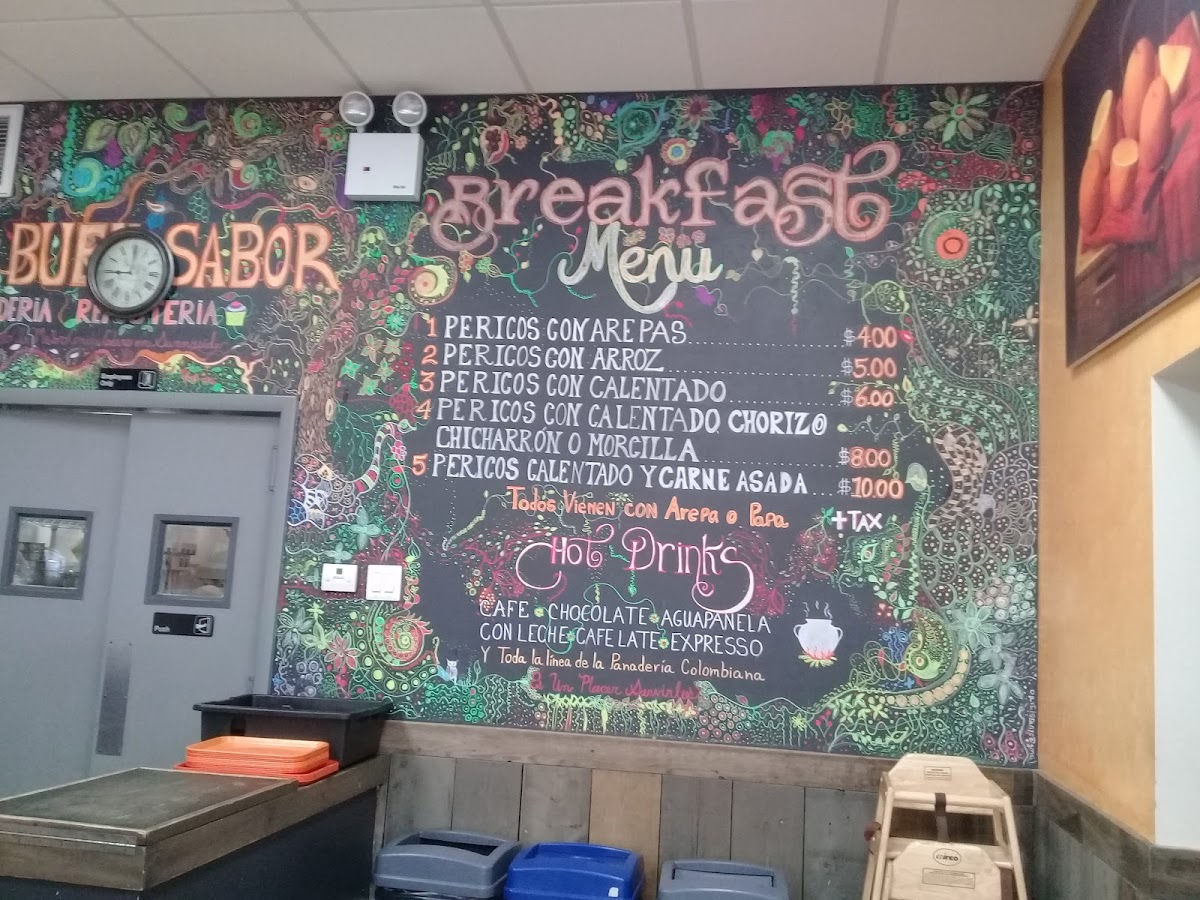 BUEN SABOR
REPOSTERIA
Employees
Only
Push
Breakfast
Menu
1 PERICOS CON AREPAS $4.00
2 PERICOS CON ARROZ $5.00
3 PERICOS CON CALENTADO $6.00
4 PERICOS CON CALENTADO, CHORIZO
CHICHARRÓN O MORCILLA $8.00
5 PERICOS CALENTADO Y CARNE ASADA $10.00
Todos Vienen con Arepa o Papa +TAX
Hot Drinks
CAFE CHOCOLATE AGUAPANELA
CON LECHE CAFE LATE EXPRESSO
Y Toda la línea de la Panadería Colombiana
Un Placer Servirles